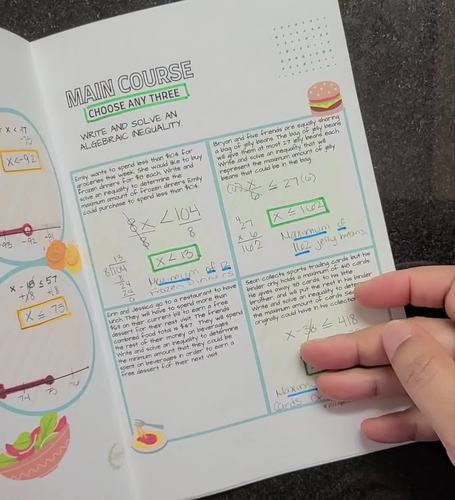 MAIN COURSE
CHOOSE ANY THREE
WRITE AND SOLVE AN
ALGEBRAIC INEQUALITY.
Emily wants to spend less than $104 for
groceries this week. She would like to buy
frozen dinners for $8 each. Write and
solve an inequality to determine the
maximum amount of frozen dinners Emily
could purchase to spend less than $104.
8x < 104
8 8
x < 13
Maximum of 12
frozen dinners
Bryan and five friends are equally sharing
a bag of jelly beans. The bag of jelly beans
will give them at most 27 jelly beans each.
Write and solve an inequality that will
represent the maximum amount of jelly
beans that could be in the bag.
(6) x/6 ≤ 27 (6)
27
x 6
162
x ≤ 162
Maximum of
162 jelly beans
Erin and Jessica go to a restaurant to have
lunch. They will have to spend more than
on their current bill to earn a free
dessert for their next visit. The friends
combined food total is $47. They will spend
the rest of their money on beverages.
Write and solve an inequality to determine
the minimum amount that they could be
spent on beverages in order to earn a
free dessert for their next visit.
Sean collects sports trading cards but his
binder only holds a maximum of 418 cards.
He gives away 36 cards to his little
brother and will put the rest in his binder.
Write and solve an inequality to
the maximum amount of cards Sean
originally could have in his collection
x - 36 ≤ 418
cards
x < -92
-93 -92 -91
x - 18 ≤ 57
+18
x ≤ 75
74 75